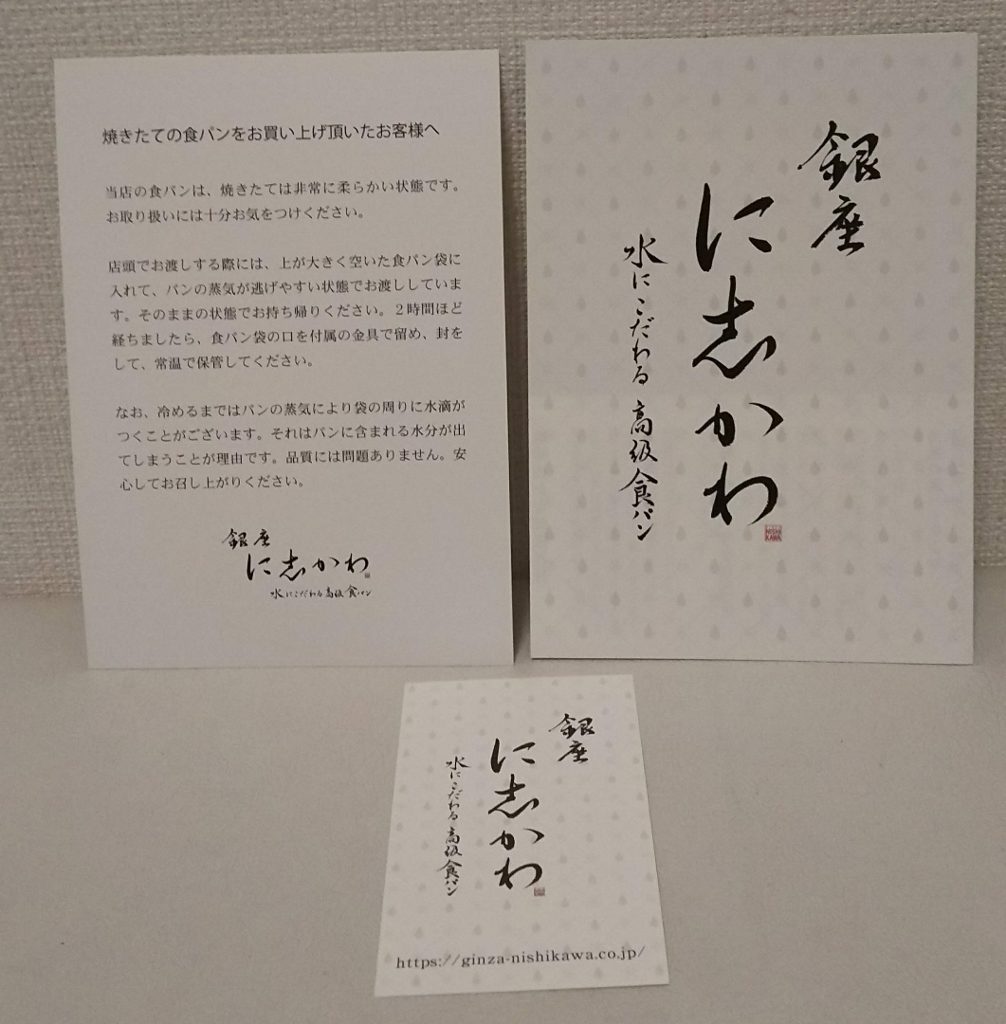 焼きたての食パンをお買い上げ頂いたお客様へ
当店の食パンは、焼きたては非常に柔らかい状態です。
お取り扱いには十分お気をつけください。
店頭でお渡しする際には、上が大きく空いた食パン袋に
入れて、パンの蒸気が逃げやすい状態でお渡ししていま
す。そのままの状態でお持ち帰りください。２時間ほど
経ちましたら、食パン袋の口を付属の金具で留め、封を
して、常温で保管してください。
なお、冷めるまではパンの蒸気により袋の周りに水滴が
つくことがございます。それはパンに含まれる水分が出
てしまうことが理由です。品質には問題ありません。安
心してお召し上がりください。
銀座
に志かわ
水にこだわる高級食パン
銀座
に志かわ
水にこだわる高級食パン
NISHI
KAWA
銀座
に志かわ
水にこだわる高級食パン
https://ginza-nishikawa.co.jp/